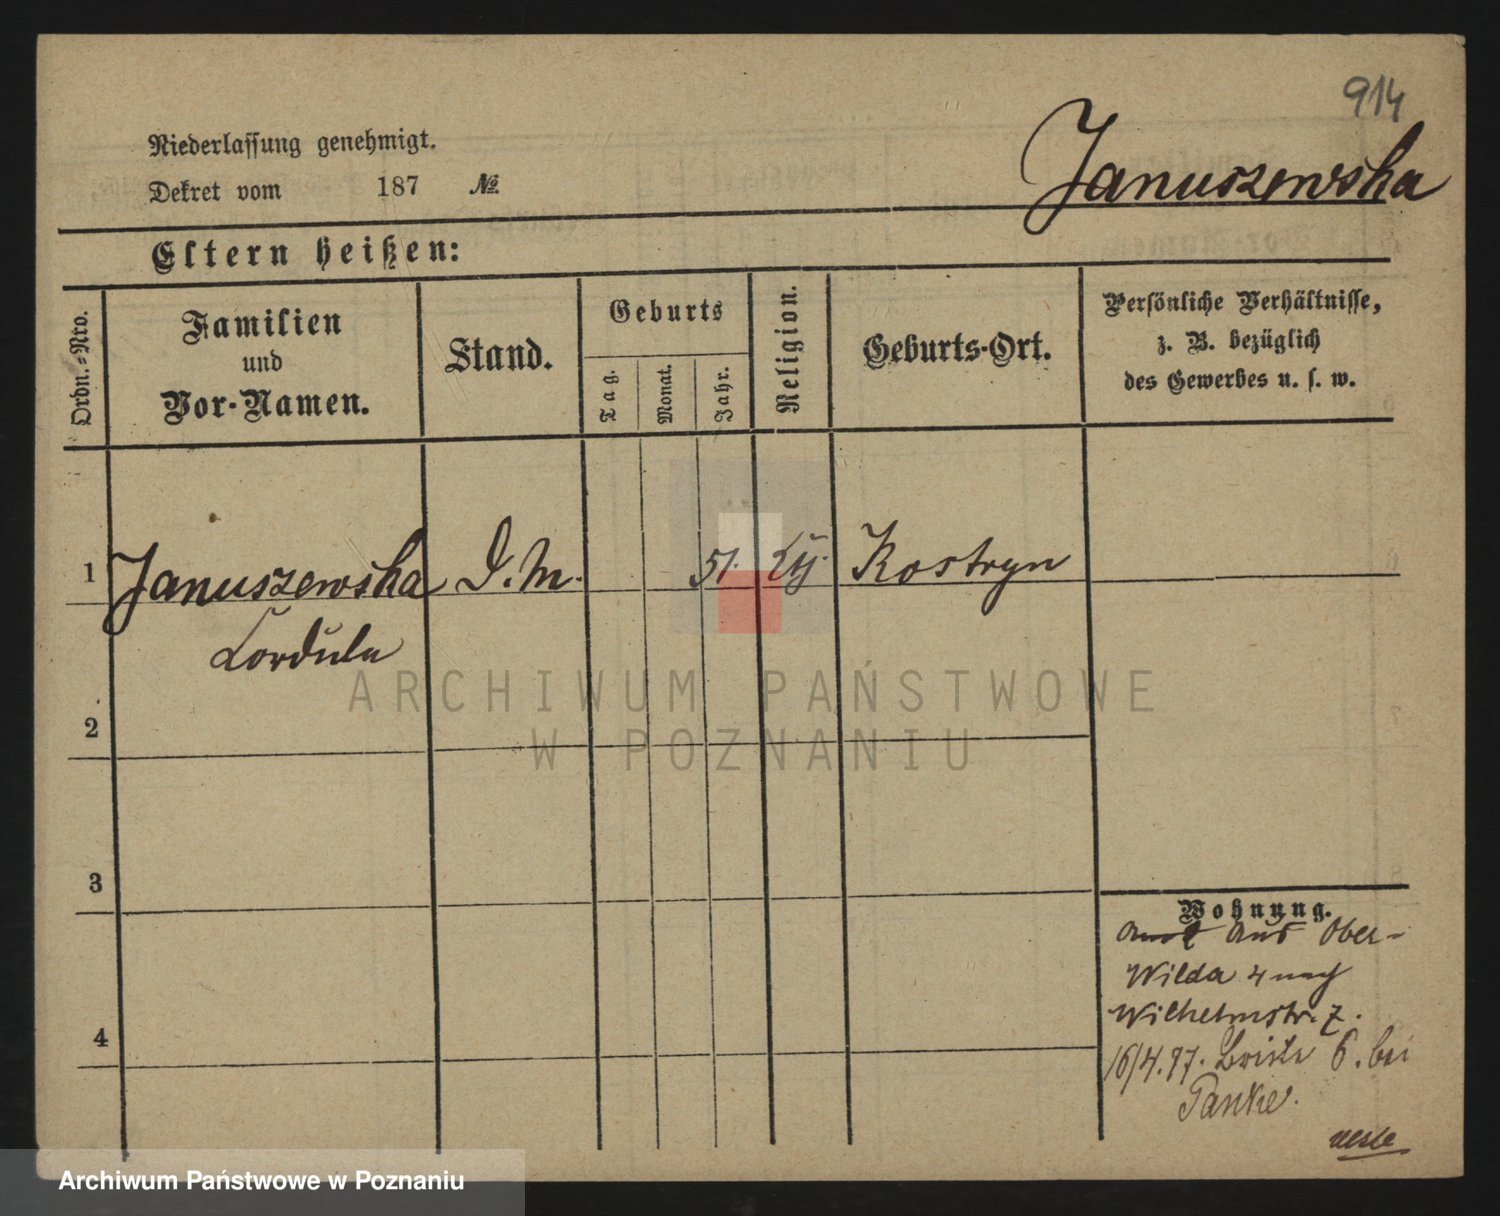 914
Januszewska
Niederlassung genehmigt.
Dekret vom 187 №
Eltern heißen:
Ordn.-Nro.
Familien
und
Vor-Namen.
Stand.
Geburts
Tag.
Monat.
Jahr.
Religion.
Geburts-Ort.
Persönliche Verhältnisse,
z. B. bezüglich
des Gewerbes u. s. w.
1 Januszewska D. M. 51. Kostryn
Cordula
2
3
4
Wohnung.
aus Ober-
Wilda 4 nach
Wilhelmstr. 7.
16/4.97. 6. bei
Panke.
ARCHIWUM PAŃSTWOWE
W POZNANIU
Archiwum Państwowe w Poznaniu